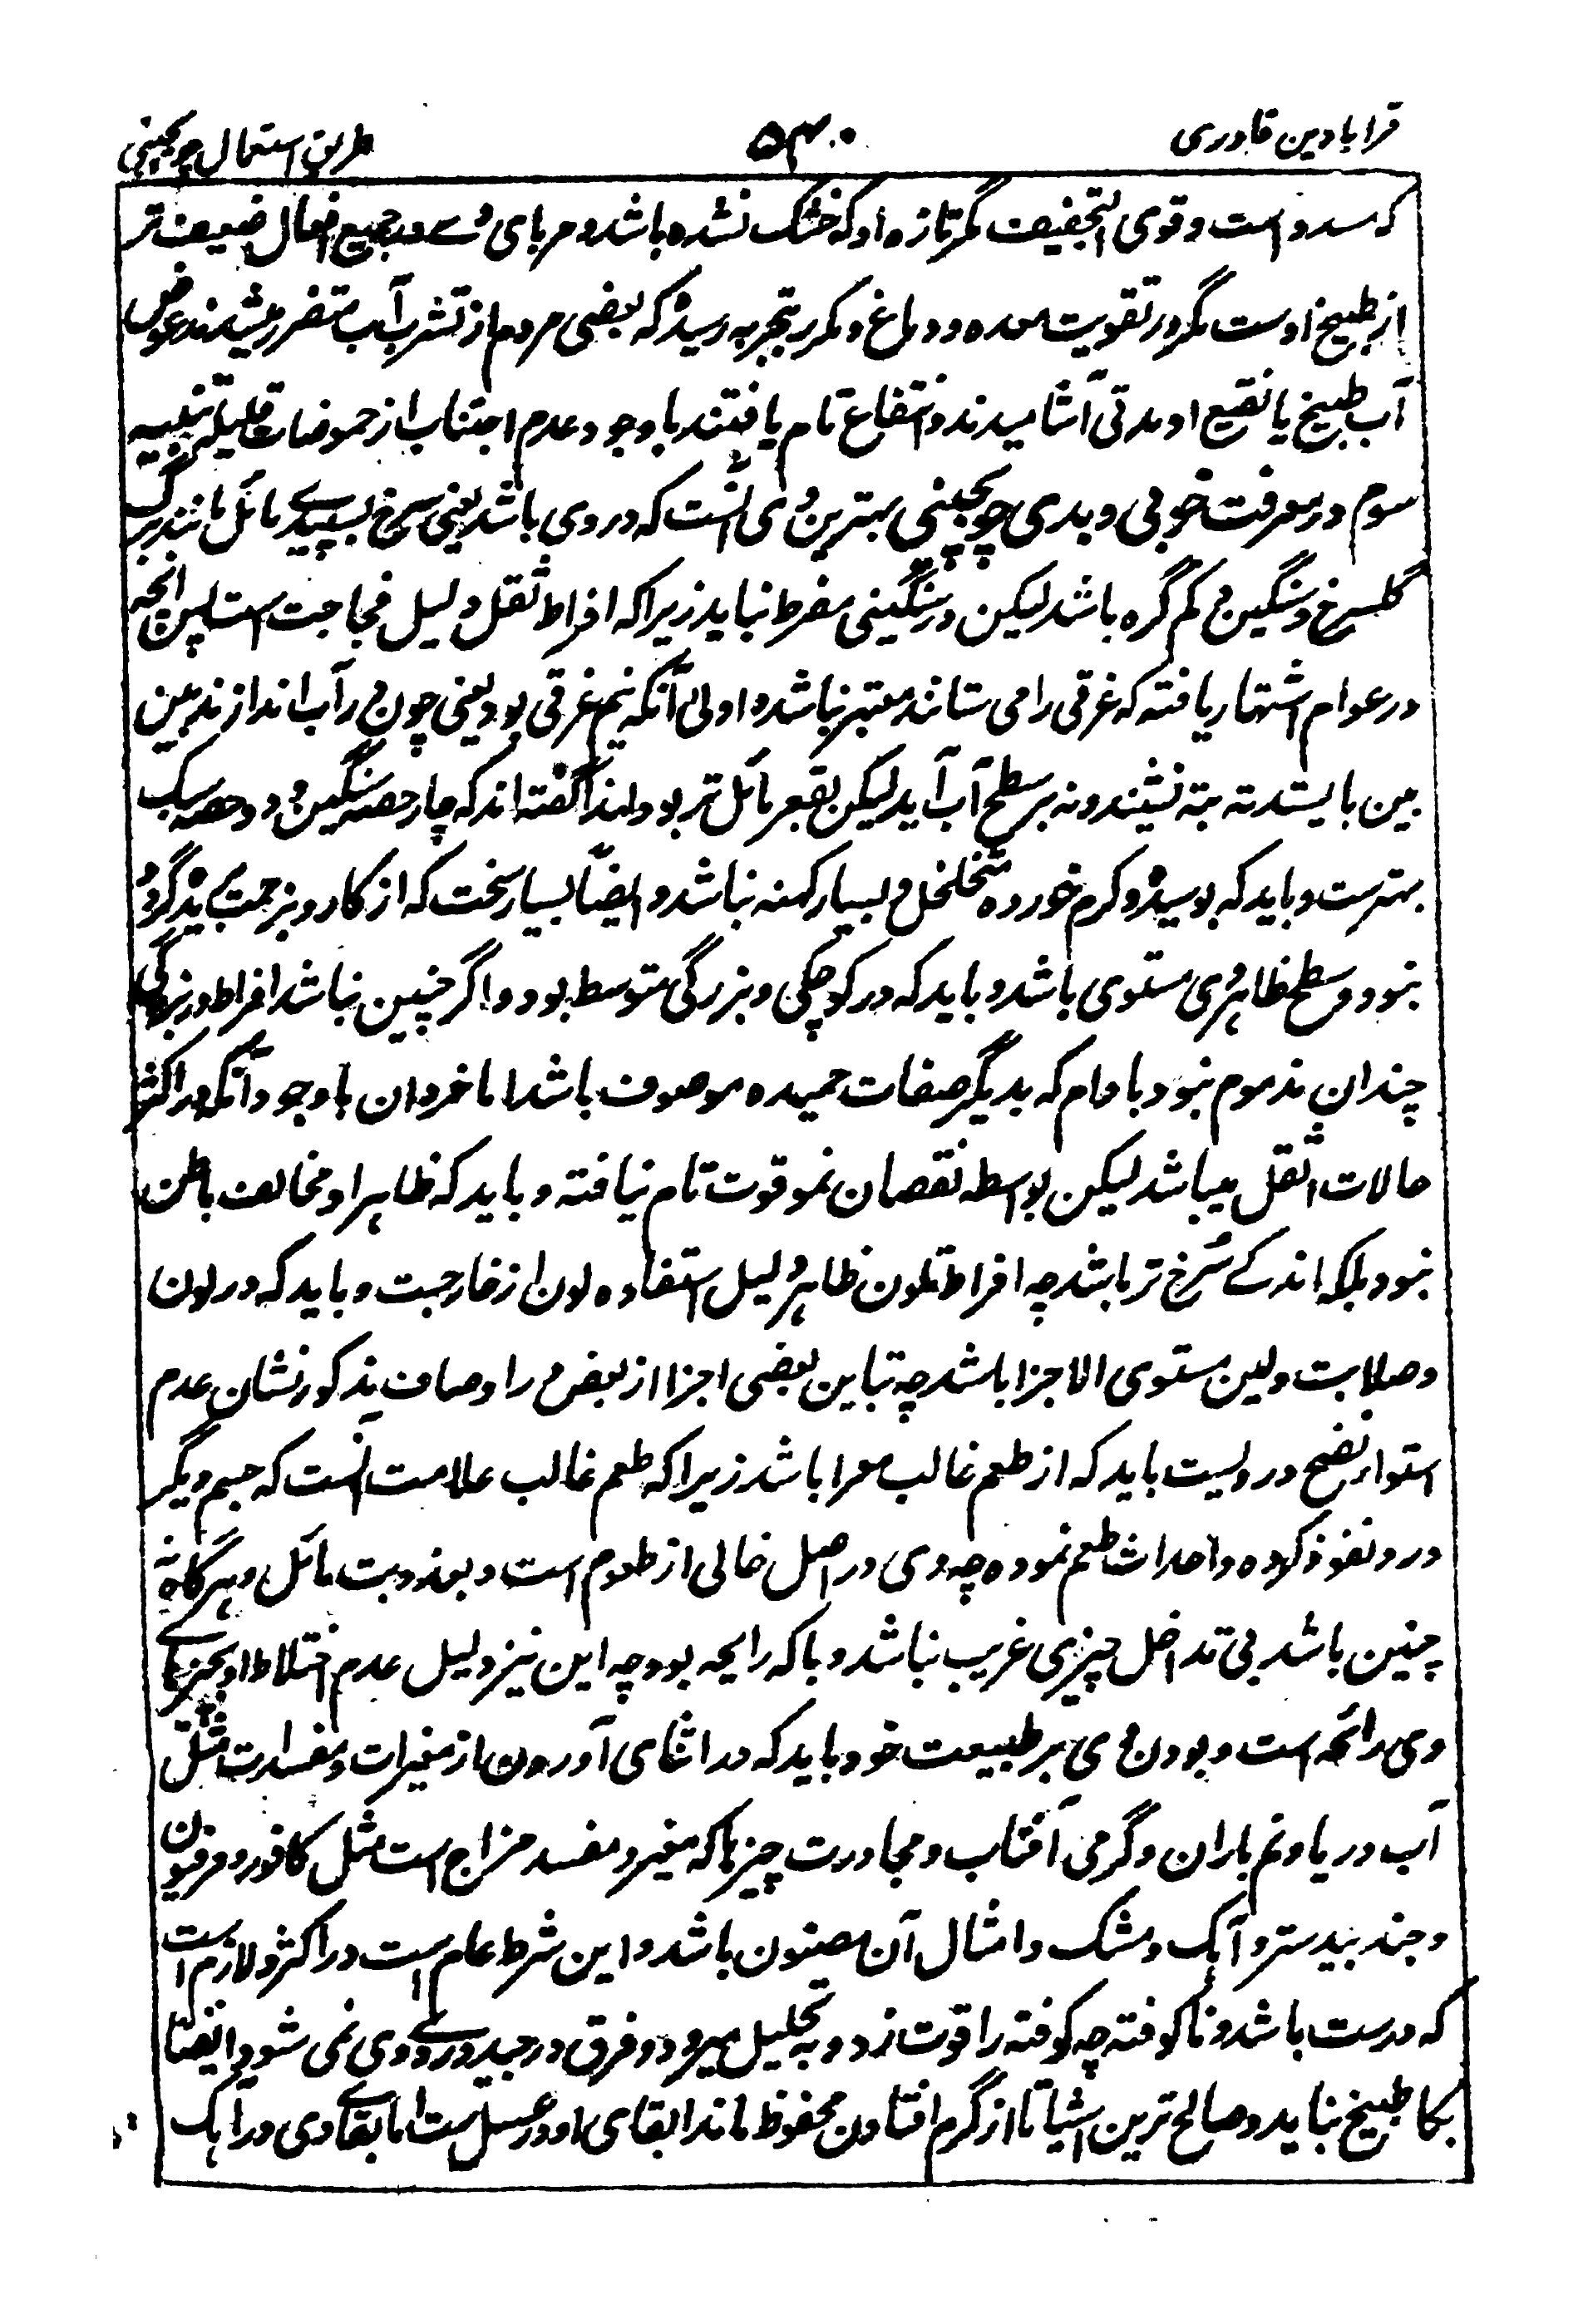 قرابادین قادری
۵۴۰
طریق استعمال چوبچینی
که سدد است و قوی التجفیف مگر تازه او که خشک نشده باشد و مربای وے در جمیع افعال ضعیف تر
از طبیخ اوست مگر در تقویت معده و دماغ و مکرر بتجربه رسیده که بعضی مردم از تشرب آب متضرر میشدند عوض
آب طبیخ یا نقیع او مدتی آشامیدند و انتفاع تام یافتند با وجود عدم اجتناب از حموضات قلیله تنبیه
سوم در معرفت خوبی و بدی چوبچینی بهترین وی آنست که وردی باشد یعنی سرخ بسپیدے مائل مانند برگ
گلسرخ و سنگین و کم گره باشد لیکن در سنگینی مفرط نباید زیرا که افراط ثقل دلیل فجاجت است پس آنچه
در عوام اشتهار یافته که غرقی را می ستانند معتبر نباشد و اولی آنکه نیم غرقی بود یعنی چون در آب اندازند بین
بین بایستد نه بته نشیند و نه بر سطح آب آید لیکن بقعر مائل تر بود لهذا گفته اند که چار حصه سنگین و دو حصه سبک
بهترست و باید که بوسیده و کرم خورده متخلخل و بسیار کهنه نباشد و ایضاً بسیار سخت که از کارد بزحمت بریده گردد
نبود و سطح ظاهر وی مستوی باشد و باید که در کوچکی و بزرگی متوسط بود و اگر چنین نباشد افراط در بزرگی
چندان مذموم نبود مادام که بدیگر صفات حمیده موصوف باشد اما خردان با وجود آنکه در اکثر
حالات اثقل میباشد لیکن بواسطه نقصان نمو قوت تام نیافته و باید که ظاهر او مخالف باطن
نبود بلکه اندکے سرخ تر باشد چه افراط تلون ظاهر دلیل استفاده لون از خارجست و باید که در لون
و صلابت و لین مستوی الاجزا باشد چه تباین بعضی اجزا از بعض در اوصاف مذکور نشان عدم
استواء نضج در ویست باید که از طعم غالب معرا باشد زیرا که طعم غالب علامت آنست که جسم دیگر
درو نفوذ کرده و احداث طعم نموده چه وی در اصل خالی از طعوم است و بعذوبت مائل و هرگاه
چنین باشد بی تداخل چیزی غریب نباشد و باکه رایحه بود چه این نیز دلیل عدم اختلاط او بچیزهاے
وی رائحه است و بودن وی بر طبیعت خود باید که در اثنای آوردن از مغیرات و مفسدات مثل
آب دریا و نم باران و گرمی آفتاب و مجاورت چیزها که مغیر و مفسد مزاج است مثل کافور و فرفیون
و جند بیدستر و آهک و مشک و امثال آن مصئون باشد و این شرط عام است در اکثر و لازم است
که درست باشد و ناکوفته چه کوفته را قوت زود به تحلیل میرود و فرق در جید و ردی وی نمی شود و ایضاً
بکار طبیخ نیاید و صالح ترین اشیا تا از گرم افتادن محفوظ ماند ابقای او در عسل ست اما بقاے وی در آهک